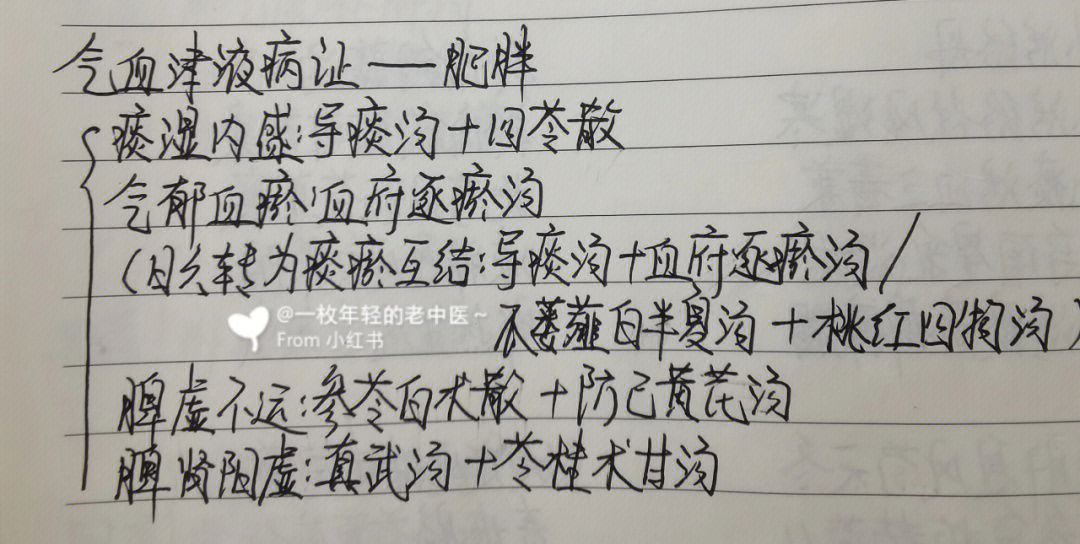 气血津液病证——肥胖
痰湿内盛:导痰汤+四苓散
气郁血瘀:血府逐瘀汤
(日久转为痰瘀互结:导痰汤+血府逐瘀汤/
瓜蒌薤白半夏汤+桃红四物汤)
@一枚年轻的老中医~
From 小红书
脾虚不运:参苓白术散+防己黄芪汤
脾肾阳虚:真武汤+苓桂术甘汤